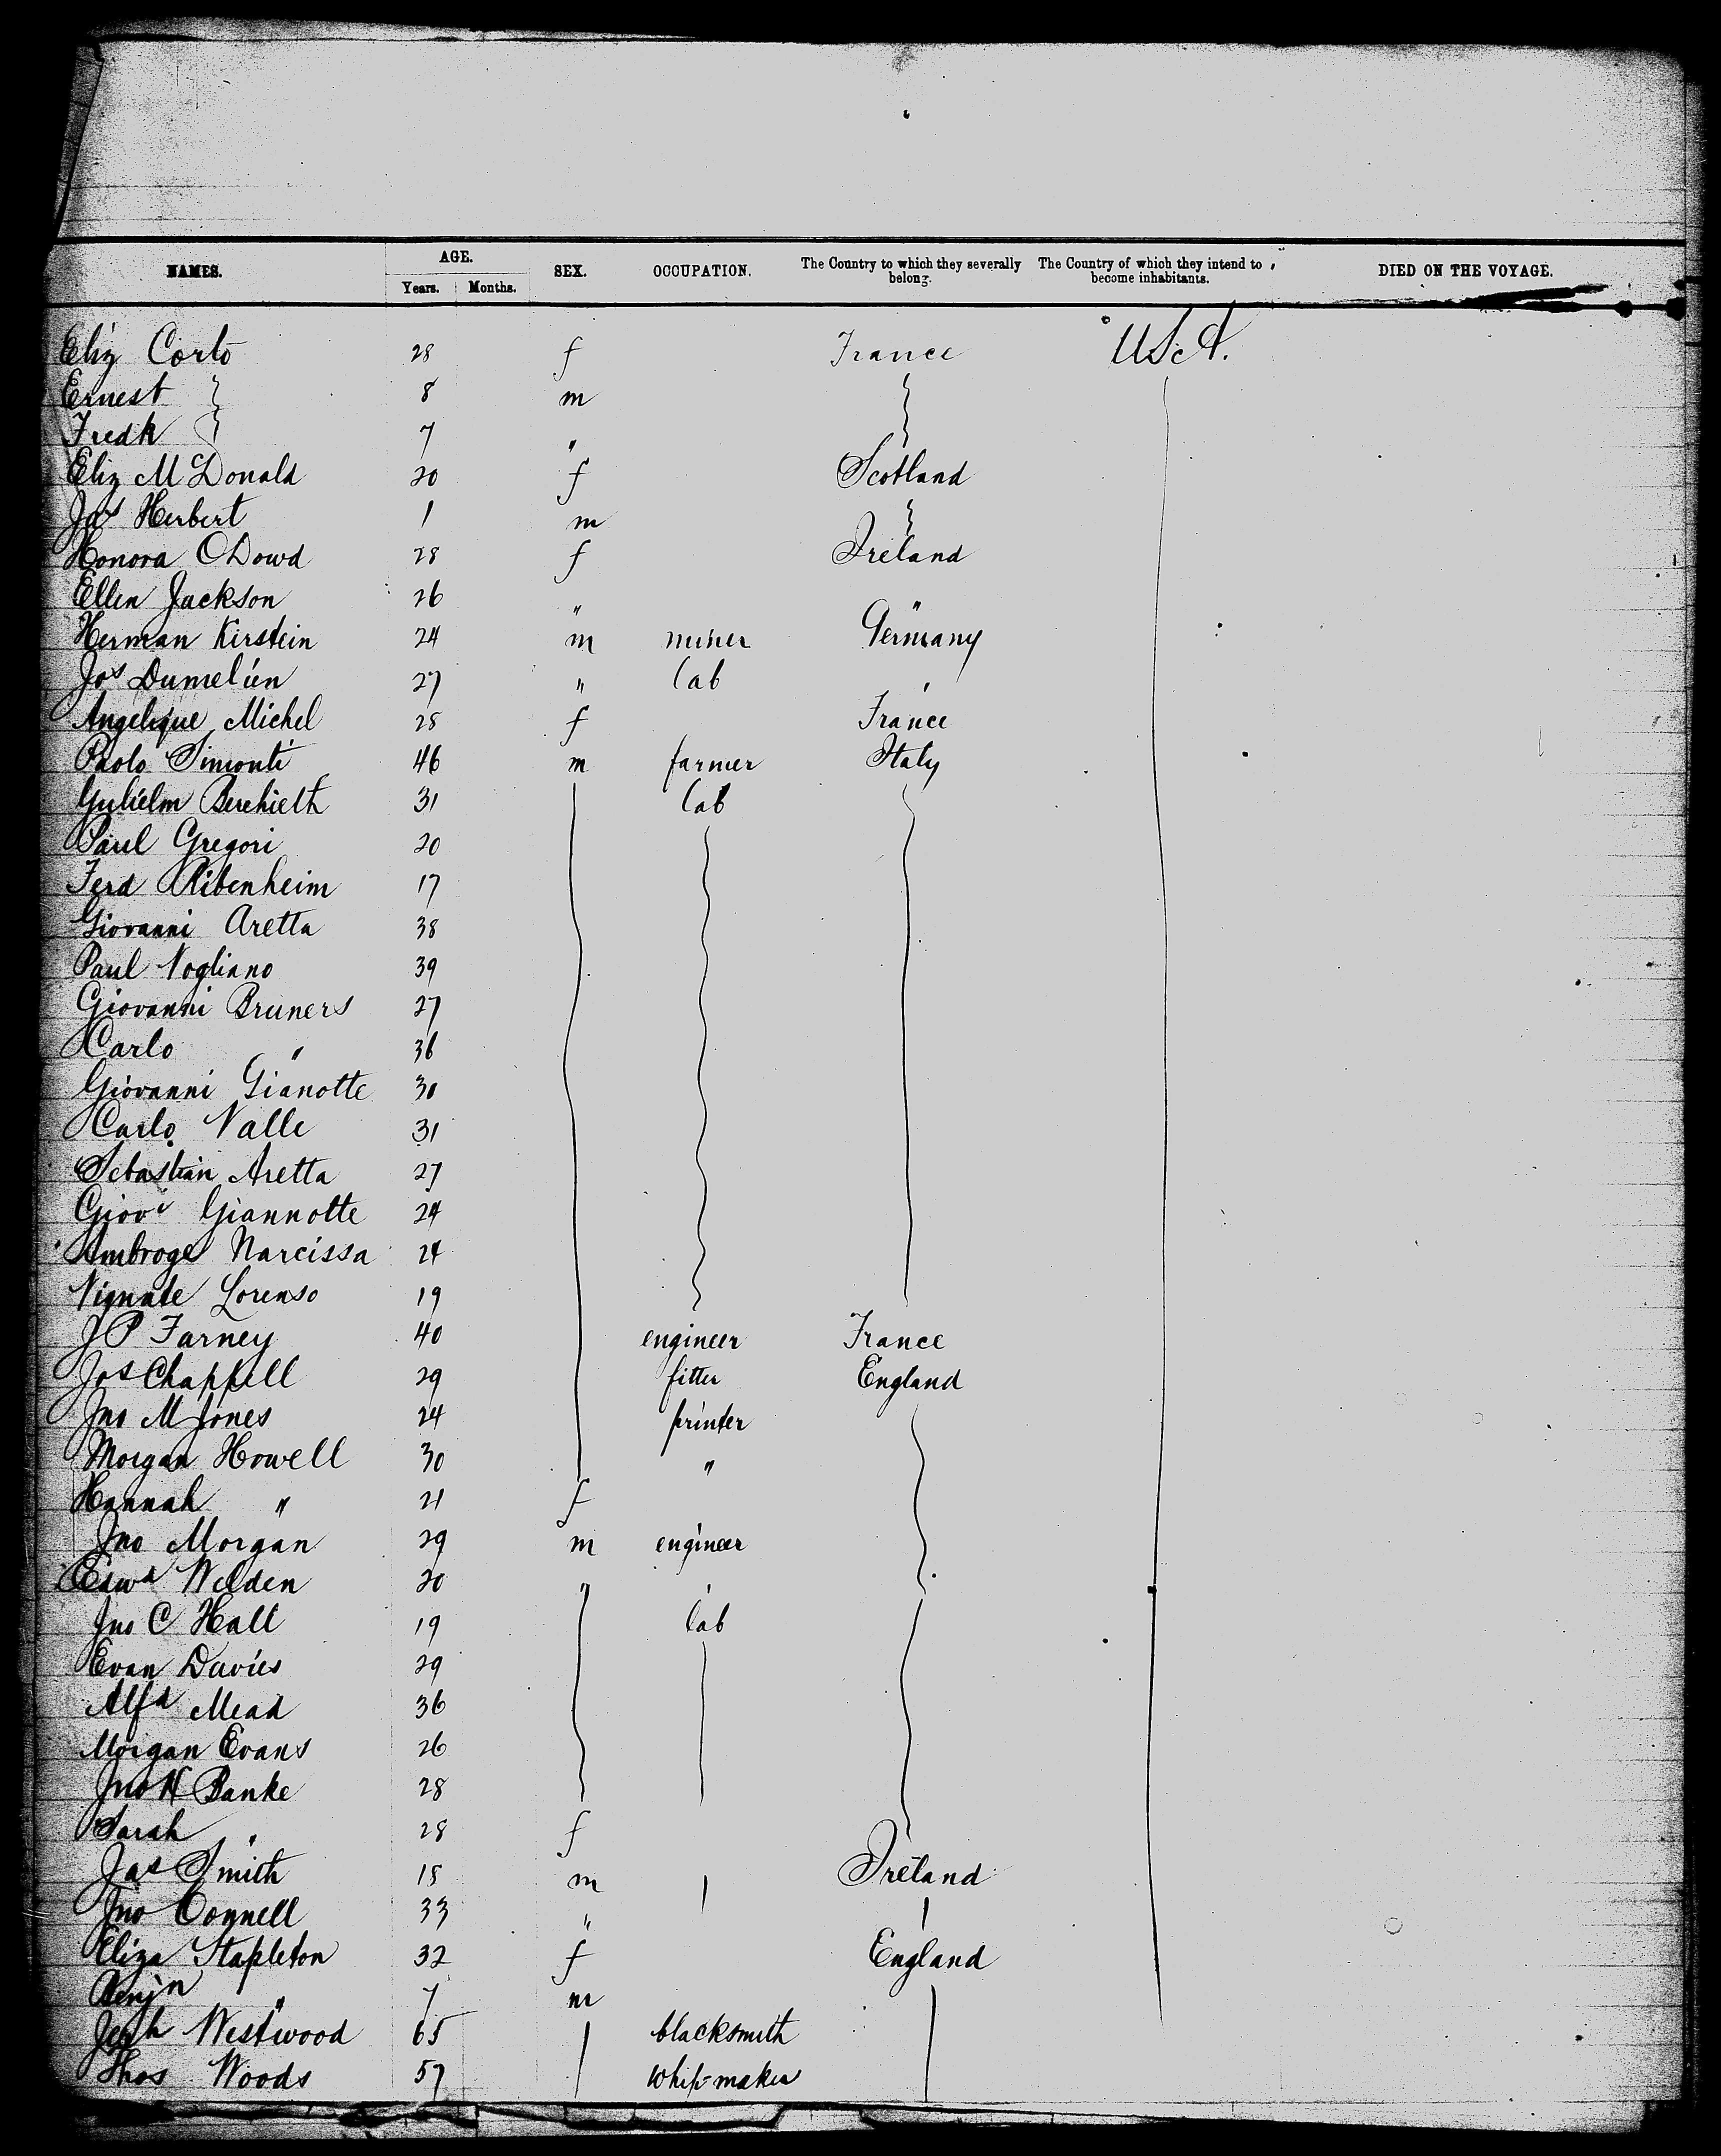 NAMES. AGE. Years. Months. SEX. OCCUPATION. The Country to which they severally belong. The Country of which they intend to become inhabitants. DIED ON THE VOYAGE.
Eliz Corto 28 f France U.S.A.
Ernest 8 m
Fredk 7 "
Eliz McDonald 20 f Scotland
Jas Herbert 1 m
Honora ODowd 28 f Ireland
Ellen Jackson 26 " "
Herman Kirstein 24 m miner Germany
Jos Dumelien 27 " lab "
Angelique Michel 28 f France
Paolo Simonti 46 m farmer Italy
Gulielm 31 lab
Paul Gregori 20
Ferd Ribenheim 17
Giovanni Aretta 38
Paul Nogliano 39
Giovanni Bruners 27
Carlo " 36
Giovanni Gianotte 30
Carlo Valle 31
Sebastian Aretta 27
Giovi Giannotte 24
Ambroge Narcissa 24
Vignate Lorenso 19
J P Farney 40 engineer France
Jos Chappell 29 fitter England
Jno M Jones 24 printer
Morgan Howell 30 "
Hannah " 21 f
Jno Morgan 29 m engineer
Edwd Welden 20 " '
Jno C Hall 19 lab
Evan Davies 29
Alfd Mead 36
Morgan Evans 26
Jno H Banke 28
Sarah " 28 f
Jas Smith 18 m Ireland
Jno Connell 33 "
Eliza Stapleton 32 f England
Benjn " 7 m
Westwood 65 blacksmith
Thos Woods 57 whip-maker